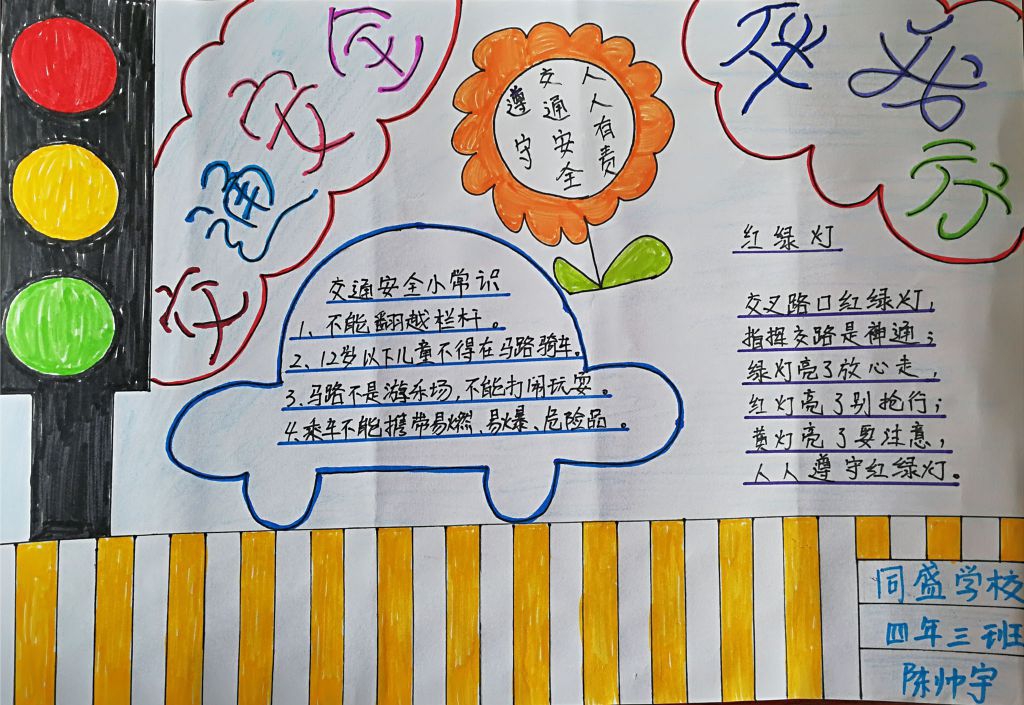 交
通
我
遵守
交通安全
人人有责
交通安全小常识
1、不能翻越栏杆。
2、12岁以下儿童不得在马路骑车。
3.马路不是游乐场,不能打闹玩耍。
4.乘车不能携带易燃、易爆、危险品。
红绿灯
交叉路口红绿灯,
指挥交路是神通;
绿灯亮了放心走,
红灯亮了别抢行;
黄灯亮了要注意,
人人遵守红绿灯。
同盛学校
四年三班
陈帅宇